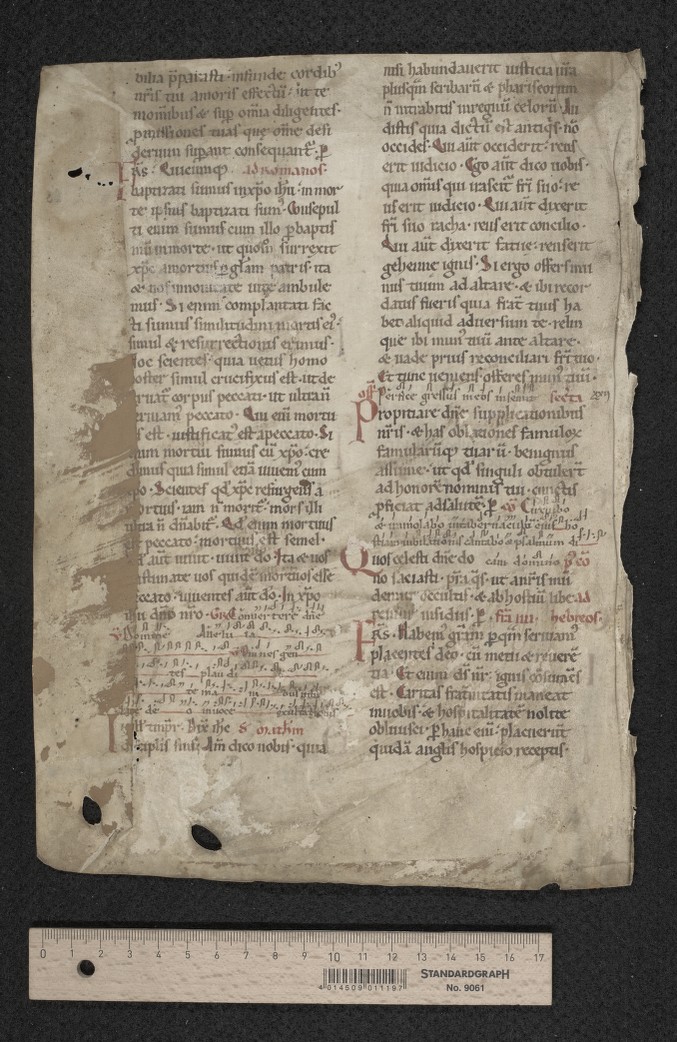 bilia p̄parasti· infunde cordib⁹
nr̄is tui amoris effectū· ut te
in om̄ibus & sup om̄ia diligentes·
p̄missiones tuas que om̄e desi
derium supant consequant᷑· ꝑ
F̄rs· Quicumq; ad romanos·
baptizati sumus in xp̄o ih̄u· in mor
te ipsius baptizati sum⁹· Consepul
ti enim sumus cum illo ꝑ baptis
mū in morte· ut quom̄ surrexit
xp̄c a mortuis ꝑ gl̄am patris· ita
& nos in nouitate uite ambule
mus· Si enim complantati fac
ti sumus similitudini mortis ei⁹·
simul & resurrectionis erimus·
hoc scientes· quia uetus homo
noster simul crucifixus est· ut de
struat᷑ corpus peccati· ut ultra n̄
seruiam⁹ peccato· Qui eni mortu
us est· iustificat⁹ est a peccato· Si
enim mortui sumus cū xp̄o· cre
dimus quia simul etiā uiuem⁹ cum
xp̄o· Scientes qd̄ xp̄c resurgens a
mortuis· iam n̄ morit᷑· mors illi
ultra n̄ dn̄abit᷑· Qd̄ enim mortuus
est peccato· mortuus est semel·
qd̄ aut̄ uiuit· uiuit do· Ita & uos
existimate uos quidē mortuos esse
peccato· uiuentes aut̄ do· in xp̄o
ih̄u dn̄o nr̄o· Gr̄ Conuertere dn̄e
Domine
Omnes gen
tes plau di
te ma ni bus
iubilate de o in uoce exultationis
In ill̄ tmpr̄· Dix̄ ih̄c S· mathm̄
discipl̄is suis· Am̄ dico uobis· quia
nisi habundauerit iusticia ur̄a
plusqm̄ scribarū & phariseorum
n̄ intrabitis in regnū celorū· Au
distis quia dictū est antiq̄s· nō
occides· Qui aut̄ occiderit· reus
erit iudicio· Ego aut̄ dico uobis·
quia om̄is qui irascit᷑ fr̄i suo· re
us erit iudicio· Qui aut̄ dixerit
fr̄i suo racha· reus erit concilio·
Qui aut̄ dixerit fatue· reus erit
gehenne ignis· Si ergo offers mu
nus tuum ad altare· & ibi recor
datus fueris quia frat̄ tuus ha
bet aliquid aduersum te· relin
que ibi mun⁹ tuū ante altare·
& uade prius reconciliari fr̄i tuo·
Et tunc ueniens offeres mun⁹ tuū·
off̄ Perfice gressus meos in semit̄ secta
Propitiare dn̄e supplicationibus
nr̄is· & has oblationes famuloꝝ
famularūq; tuarū· benignus
assume· ut qd̄ singuli optulert̄
ad honorē nominis tui· cunctis
p̄ficiat ad salutē· ꝑ cō Circuibo
& immolabo in tab̄naculo eius ho
stiam iubilationis cantabo & psalmum di
cam domino p⁹ cō
Quos celesti dn̄e do
no saciasti· p̄sta q̄s· ut a nr̄is mū
demur occultis· & ab hostiū libera
remur insidiis· ꝑ· fr̄ā iiii· ad hebreos·
F̄rs· Habem⁹ grām· ꝑ qm̄ seruiam⁹
placentes deo· cū metu & reuerē
tia· Et enim ds̄ nr̄· ignis c̄sum̄es
est· Caritas fraternitatis maneat
in uobis· & hospitalitatē nolite
obliuisci· ꝑ hanc eni· placuerūt
quidā anglis hospicio receptis·
0 1 2 3 4 5 6 7 8 9 10 11 12 13 14 15 16 17
4 014509 011197
STANDARDGRAPH
No. 9061